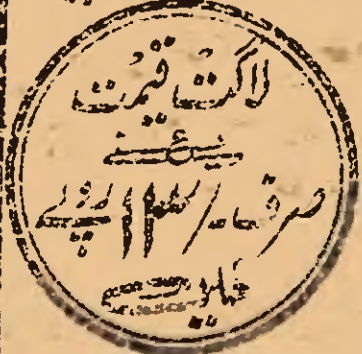 لاگت قیمت
یعنی
صرف -/۱۱۳ روپے